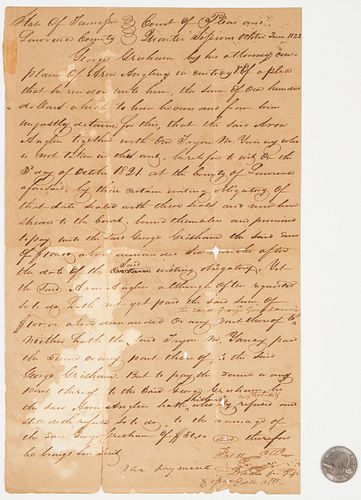 State Of Tennessee Court of Pleas and
Lawrence County Quarter Sessions October Term 1822
George Gresham by his attorney com
plains Of Aron Anglin in custody &c of a plea
that he render unto him, the sum of One hundred
dollars which to him he owes and from him
unjustly detains; for this, that the said Aron
Anglin together with One Tryon M. Yancy who
is not taken in this writ, heretofore to wit on the
day of October 1821 at the County of Lawrence
aforesaid, by their certain writing Obligatory Of
that date sealed with their seals and now here
shown to the Court, bound themselves and promised
to pay unto the said George Gresham the said sum
of $100.00 above demanded six months after
the date of the said writing obligatory, Yet
the said Aron Anglin although often requested
so to do hath not yet paid the said sum of
$100.00 above demanded or any part thereof to
the said George Gresham
Neither hath the said Tryon M. Yancy paid
the same or any part thereof to the said
George Gresham. But to pay the same or any
part thereof to the said George Gresham, he
the said Aron Anglin hath hitherto refused and
still doth refuse so to do, to the damage of
the said George Gresham of $50.00 and therefore
he brings his suit